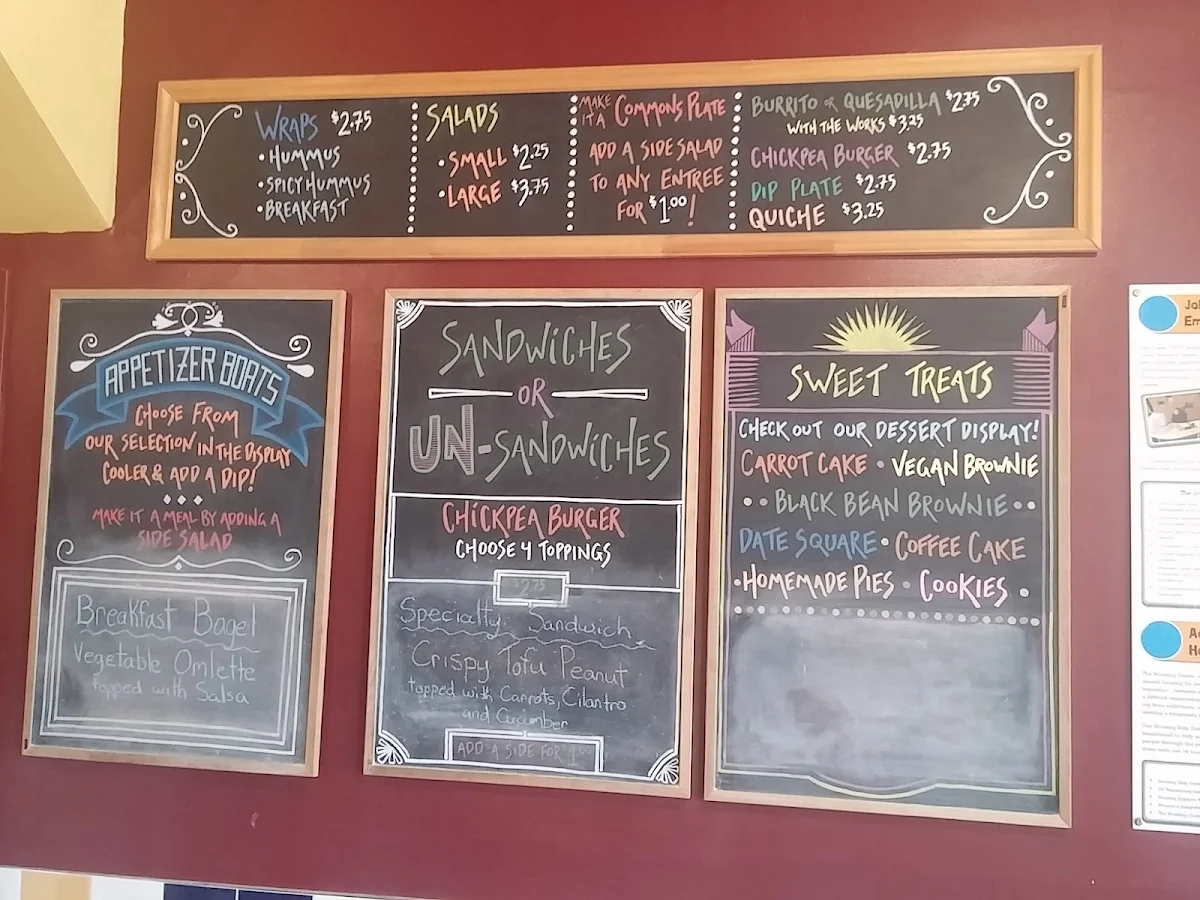 WRAPS $2.75
• HUMMUS
• SPICY HUMMUS
• BREAKFAST
SALADS
• SMALL $2.25
• LARGE $3.75
MAKE IT A COMMONS PLATE
ADD A SIDE SALAD
TO ANY ENTREE
FOR $1.00!
BURRITO OR QUESADILLA $2.75
WITH THE WORKS $3.25
CHICKPEA BURGER $2.75
DIP PLATE $2.75
QUICHE $3.25
APPETIZER BOATS
CHOOSE FROM
OUR SELECTION IN THE DISPLAY
COOLER & ADD A DIP!
MAKE IT A MEAL BY ADDING A
SIDE SALAD
Breakfast Bagel
Vegetable Omlette
topped with Salsa
SANDWICHES
OR
UN-SANDWICHES
CHICKPEA BURGER
CHOOSE 4 TOPPINGS
$2.75
Specialty Sandwich
Crispy Tofu Peanut
topped with Carrots, Cilantro
and Cucumber
ADD A SIDE FOR $1.00
SWEET TREATS
CHECK OUT OUR DESSERT DISPLAY!
CARROT CAKE • VEGAN BROWNIE
•• BLACK BEAN BROWNIE ••
DATE SQUARE • COFFEE CAKE
• HOMEMADE PIES • COOKIES •